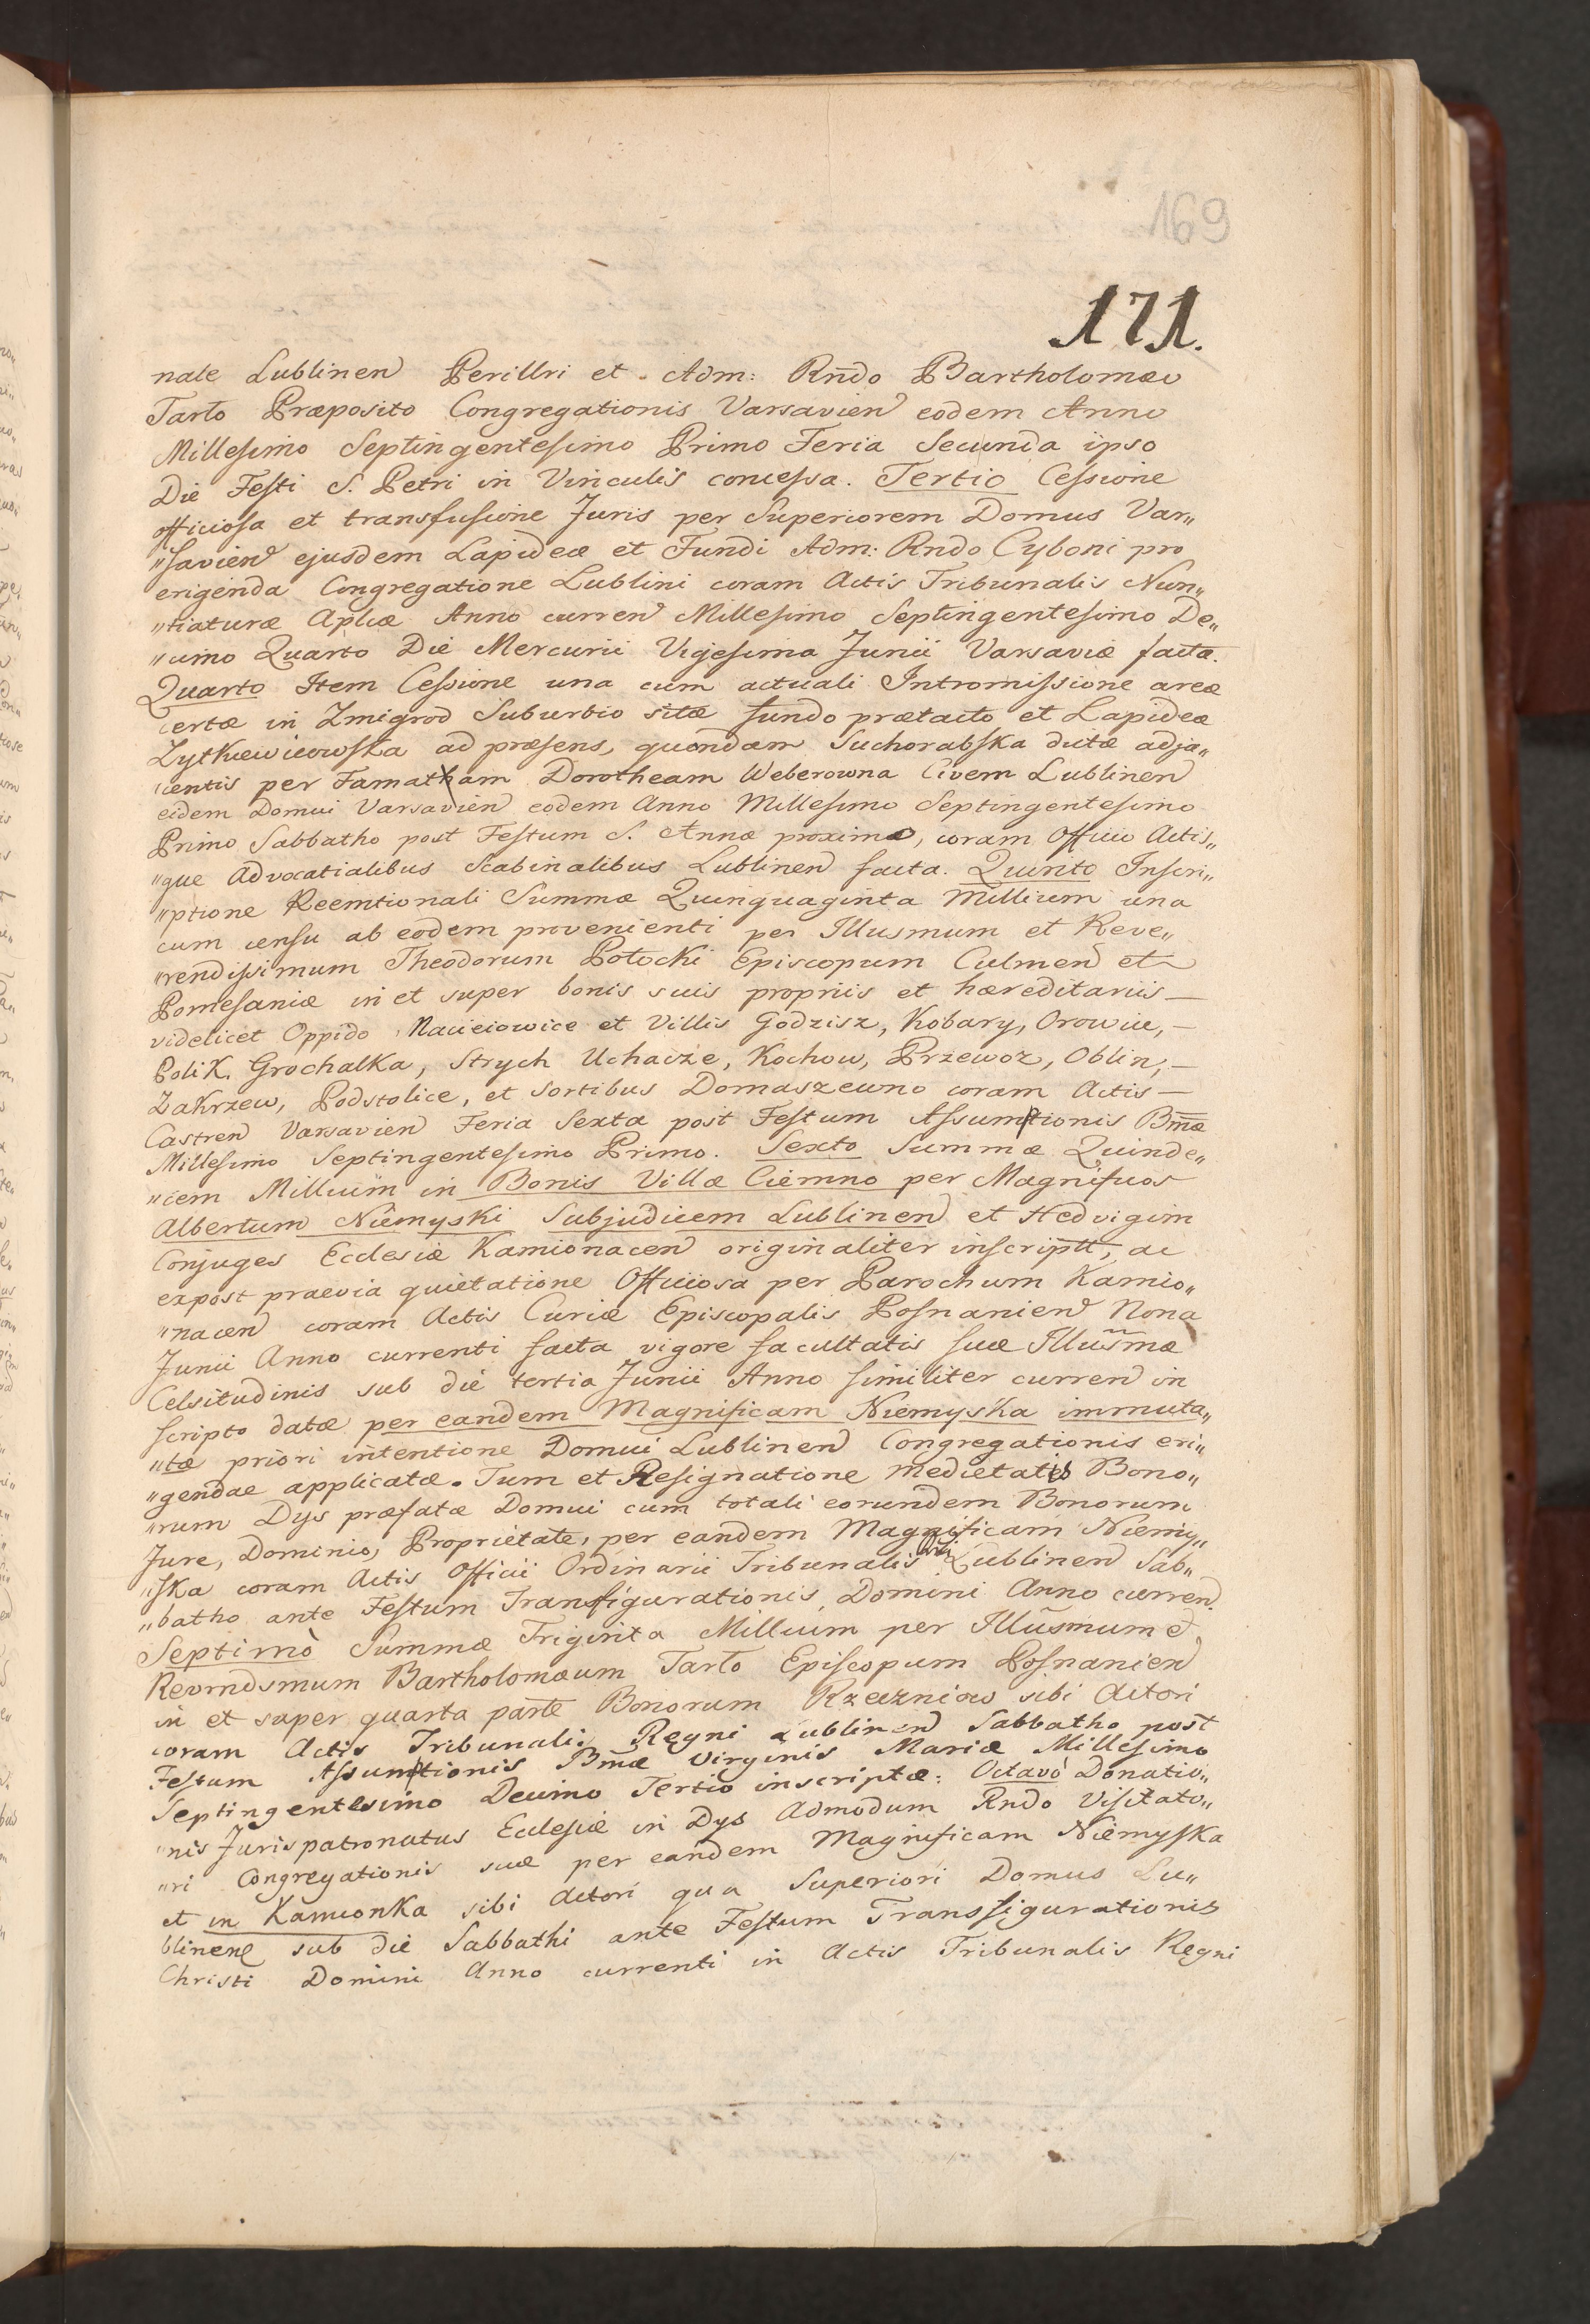 169
171.
nale Lublinen Perillri et Adm: Rndo Bartholomæo
Tarło Præposito Congregationis Varsavien eodem Anno
Millesimo Septingentesimo Primo Feria Secunda ipso
Die Festi S. Petri in Vinculis concessa. Tertio Cessione
officiosa et transfusione Juris per Superiorem Domus Var„
„savien ejusdem Lapideæ et Fundi Adm: Rndo Cyboni pro
erigenda Congregatione Lublini coram Actis Tribunalis Nun„
„tiaturæ Aplicæ Anno curren Millesimo Septingentesimo De„
„cimo Quarto Die Mercurii Vigesima Junii Varsaviæ facta.
Quarto Item Cessione una cum actuali Intromissione areæ
certæ in Zmigrod Suburbio sitæ fundo prætacto et Lapideæ
Zytkiewicowska ad præsens, quondam Suchorabska dictæ adja„
centis per Famatham Dorotheam Weberowna Civem Lublinen
eidem Domui Varsavien eodem Anno Millesimo Septingentesimo
Primo Sabbatho post Festum S. Annæ proximo, coram Officio Actis„
„que Advocatialibus Scabinalibus Lublinen facta. Quinto Inscri„
„ptione Reemtionali Summæ Quinquaginta Millium una
cum censu ab eodem provenienti per Illusmum et Reve„
„rendissimum Theodorum Potocki Episcopum Culmen et
Pomesaniæ in et super bonis suis propriis et hæreditariis —
videlicet Oppido Macieiowice et Villis Godzisz, Kobary, Orowie, —
Polik. Grochalka, Strych Uchacze, Kochow, Przewoz, Oblin, —
Zakrzew, Podstolice, et Sortibus Domaszewno coram Actis —
Castren Varsavien Feria Sexta post Festum Assumptionis Bmæ
Millesimo Septingentesimo Primo. Sexto Summæ Quinde„
„cem Millium in Bonis Villæ Ciemno per Magnificos
Albertum Niemyski Subjudicem Lublinen et Hedvigim
Conjuges Ecclesiæ Kamionacen originaliter inscriptt, ac
expost praevia quietatione Officiosa per Parochum Kamio„
„nacen coram Actis Curiæ Episcopalis Posnanien Nona
Junii Anno currenti facta vigore facultatis suæ Illusmæ
Celsitudinis sub die tertia Junii Anno similiter curren in
scripto datæ per eandem Magnificam Niemyska immuta„
„tæ priori intentione Domui Lublinen Congregationis eri„
„gendae applicatæ. Tum et Resignatione medietatis Bono„
„rum Dys præfatæ Domui cum totali eorundem Bonorum
Jure, Dominio, Proprietate, per eandem Magnificam Niemy„
„ska coram Actis Officii Ordinarii Tribunalis Lublinen Sab„
„batho ante Festum Transfigurationis Domini Anno curren.
Septimò Summæ Triginta Millium per Illusmum et
Revrndsmum Bartholomæum Tarło Episcopum Posnanien
in et super quarta parte Bonorum Rzeczniow sibi Actori
coram Actis Tribunalis Regni Lublinen Sabbatho post
Festum Assumptionis Bmæ Virginis Mariæ Millesimo
Septingentesimo Decimo Tertio inscriptæ: Octavò Donatio„
„nis Jurispatronatus Ecclesiæ in Dys Admodum Rndo Visitato„
„ri Congregationis suæ per eandem Magnificam Niemyska
et in Kamionka sibi Actori qua Superiori Domus Lu„
blinen sub die Sabbathi ante Festum Transfigurationis
Christi Domini Anno currenti in Actis Tribunalis Regni